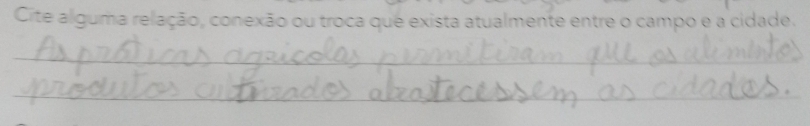 Cite alguma relação, conexão ou troca que exista atualmente entre o campo e a cidade.
As práticas agricolas permitiram que os alimentos
produtos cultivados abastecessem as cidades.